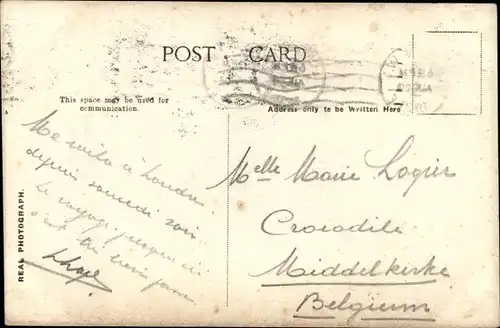 POST CARD
This space may be used for
communication.
Address only to be Written Here
REAL PHOTOGRAPH.
Me voila à Londres
depuis samedi soir.
Le voyage jusque ici
s'est
Melle Marie Logier
Crocodile
Middelkerke
Belgium